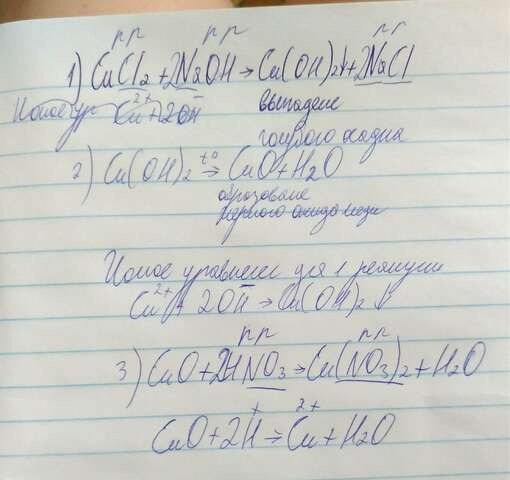 р р р р р р
1) CuCl2 + 2NaOH → Cu(OH)2↓ + 2NaCl
Ионое ур Cu2+ + 2OH- выпадение
голубого осадка
2) Cu(OH)2 t°→ CuO + H2O
образование
черного оксида меди
Ионое уравнение для 1 реакции
Cu2+ + 2OH- → Cu(OH)2↓
р р р р
3) CuO + 2HNO3 → Cu(NO3)2 + H2O
CuO + 2H+ → Cu2+ + H2O